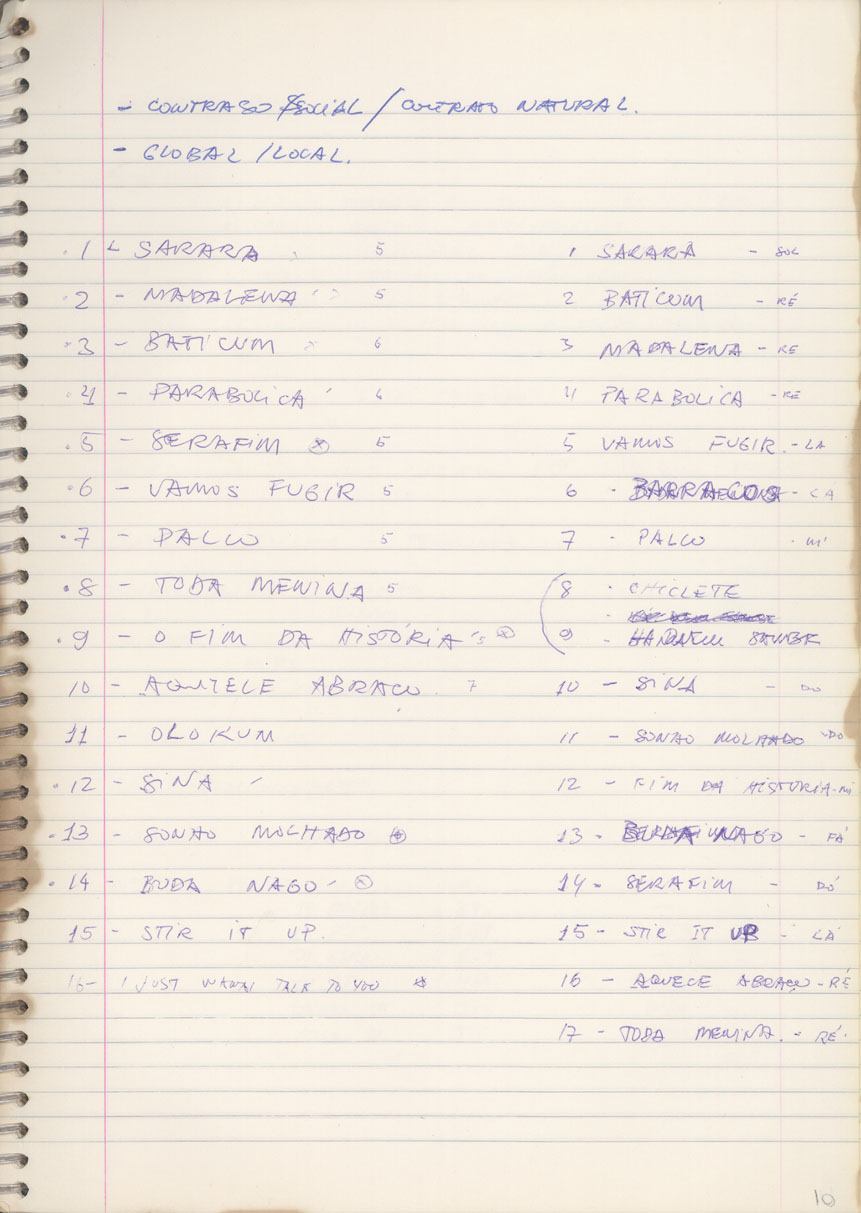 - CONTRASO SOCIAL / CONTRATO NATURAL.
- GLOBAL / LOCAL.
.1 - SARARA 5
.2 - MADALENA 5
.3 - BATICUM 6
.4 - PARABOLICA 6
.5 - SERAFIM ⊗ 5
.6 - VAMOS FUGIR 5
.7 - PALCO 5
.8 - TODA MENINA 5
.9 - O FIM DA HISTÓRIA 5 ⊗
10 - AQUELE ABRAÇO. 7
11 - OLOKUM
.12 - SINA -
.13 - SONHO MOLHADO ⊕
.14 - BUDA NAGO - ⊗
15 - STIR IT UP.
16 - I JUST WANNA TALK TO YOU *
1 SARARÁ - SOL
2 BATICUM - RÉ
3 MADALENA - RE
4 PARABOLICA - RE
5 VAMOS FUGIR. - LA
6 - BARRACOS - LÁ
7 - PALCO - MI
8 - CHICLETE
9 -
10 - SINA - DO
11 - SONHO MOLHADO - DO
12 - FIM DA HISTORIA - MI
13 - BUDA NAGO - FÁ
14 - SERAFIM - DÓ
15 - STIR IT UP - LÁ
16 - AQUELE ABRAÇO - RÉ
17 - TODA MENINA. - RÉ.
10